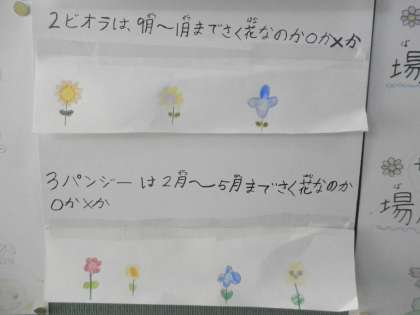 2ビオラは、9月〜1月までさく花なのか○か×か
3パンジーは2月〜5月までさく花なのか
○か×か
場
場